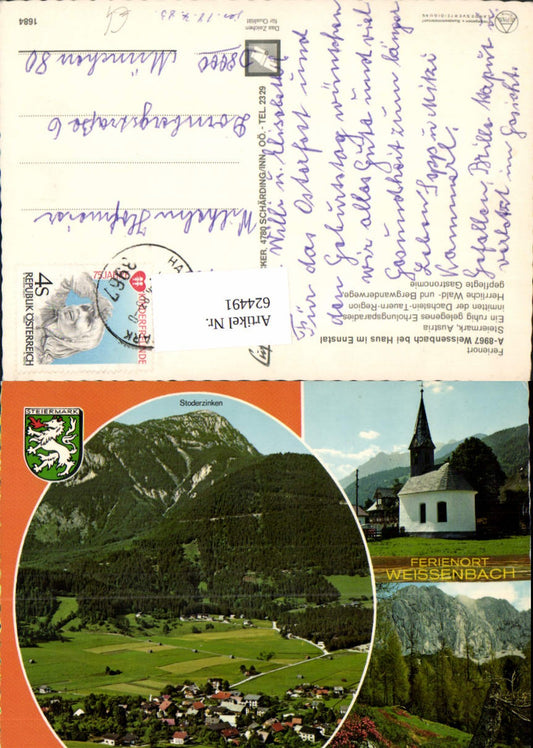 Ferienort
A-8967 Weissenbach bei Haus im Ennstal
Steiermark, Austria
Ein ruhig gelegenes Erholungsparadies
inmitten der Dachstein-Tauern-Region
Herrliche Wald- und Bergwanderwege
gepflegte Gastronomie
Willi u. Elisabeth!
Für das Osterfest und
den Geburtstag wünschen
wir alles Gute und viel
Gesundheit zum
Lieben Sepp u. Mitzi
Gefallen, Brille kaputt
verletzt im Gesicht.
4780 SCHÄRDING/INN, OÖ. - TEL. 23 29
Das Zeichen
für Qualität
1684
4s
REPUBLIK ÖSTERREICH
75 JAHRE
KINDERFREUNDE
8967
Wilhelm Hofmeier
Dornbergstraße 6
D8000 München 80
Artikel Nr.
624491
STEIERMARK
Stoderzinken
FERIENORT
WEISSENBACH